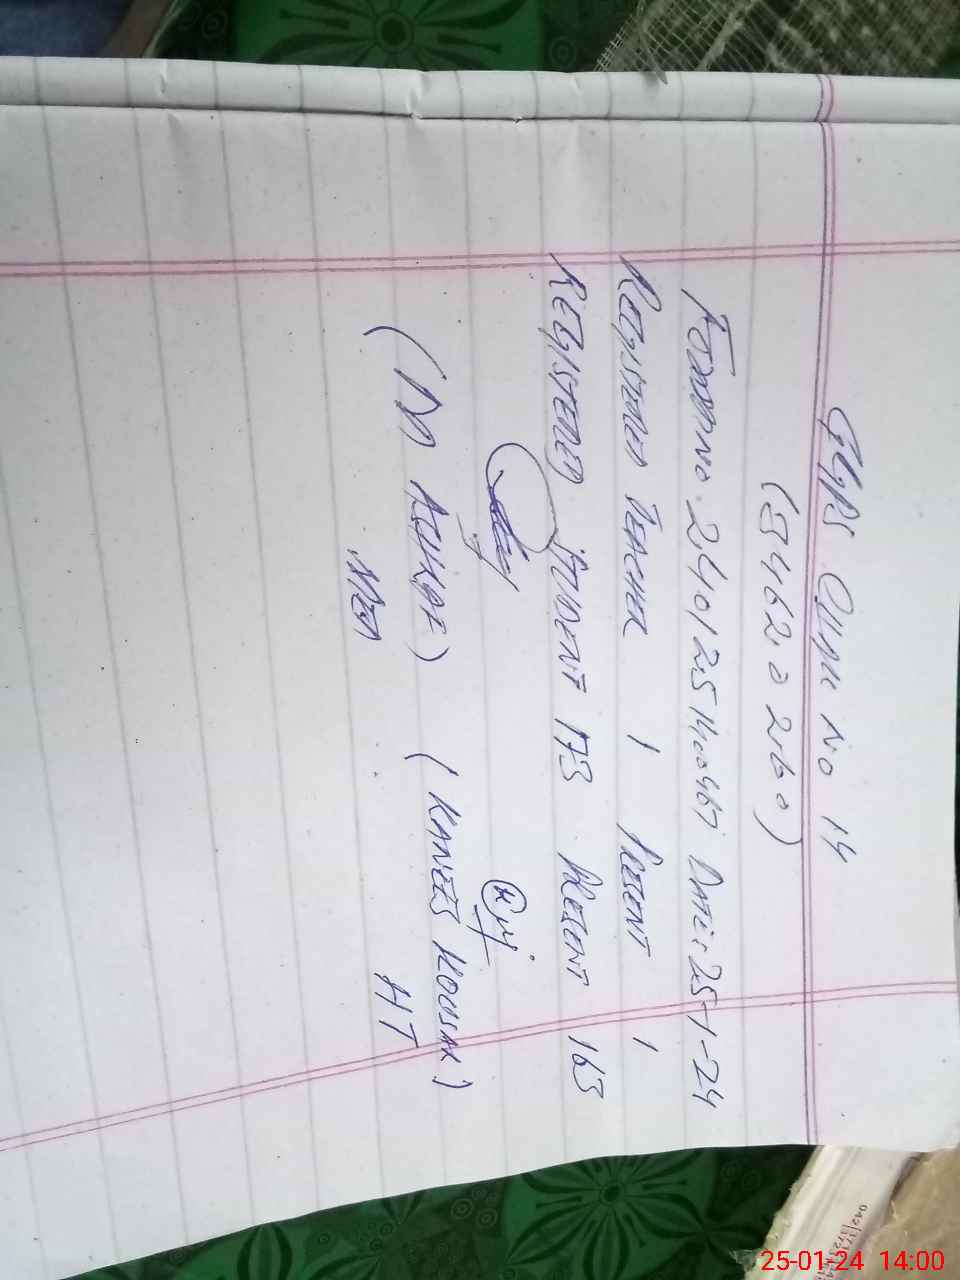 GGPS No 14
(34620260)
Form No. 240125140467 Date: 25-1-24
Registered Teacher 1 Present 1
Registered Student 173 Present 163
(M
MEA
(Kaneez Kousar)
HT
25-01-24 14:00